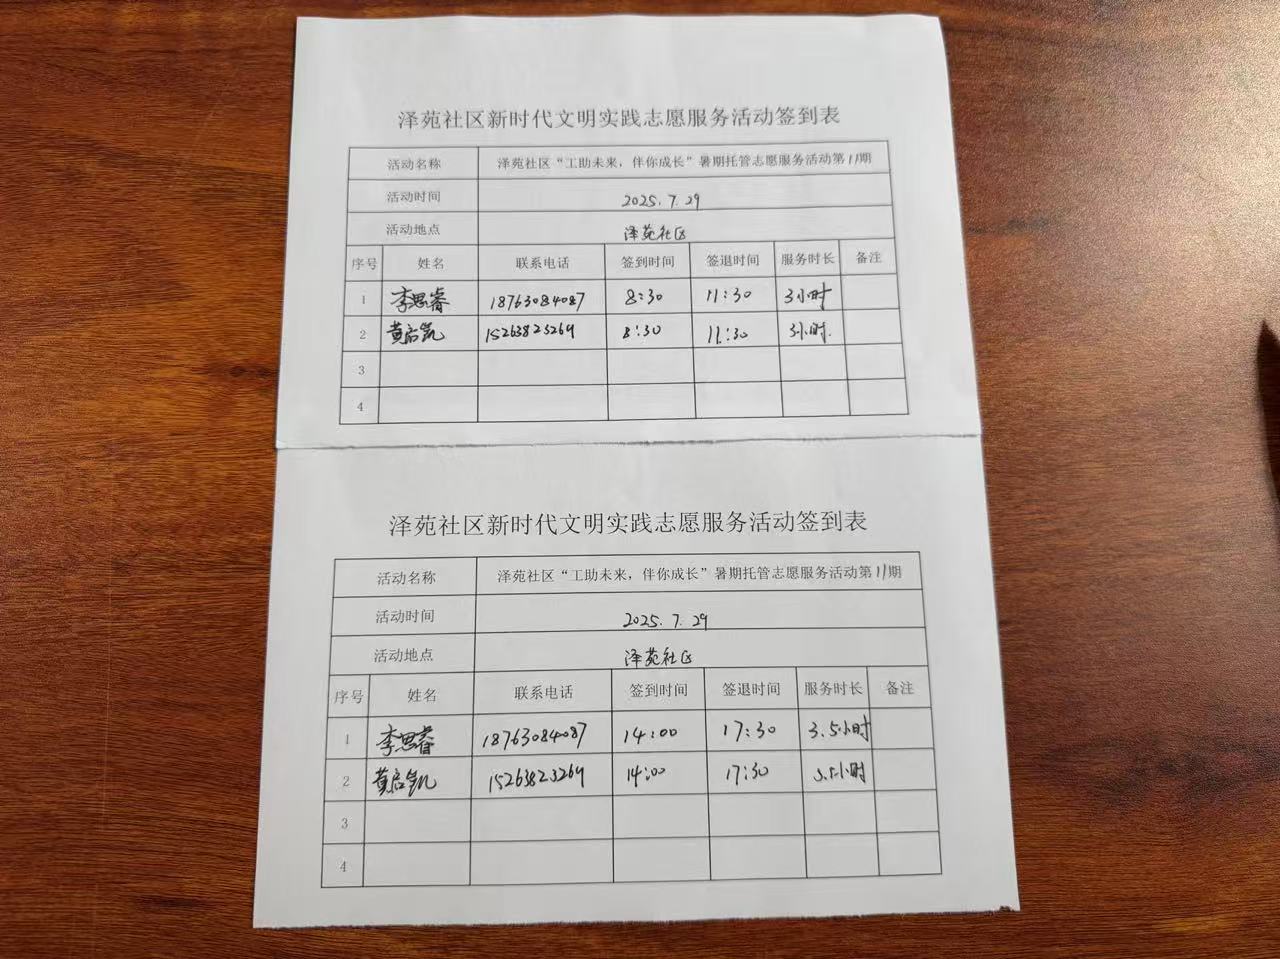 泽苑社区新时代文明实践志愿服务活动签到表
活动名称 泽苑社区“工助未来，伴你成长”暑期托管志愿服务活动第11期
活动时间 2025.7.29
活动地点 泽苑社区
序号 姓名 联系电话 签到时间 签退时间 服务时长 备注
1 李思睿 18763084087 8:30 11:30 3小时
2 黄启凯 15263823269 8:30 11:30 3小时.
3
4
泽苑社区新时代文明实践志愿服务活动签到表
活动名称 泽苑社区“工助未来，伴你成长”暑期托管志愿服务活动第11期
活动时间 2025.7.29
活动地点 泽苑社区
序号 姓名 联系电话 签到时间 签退时间 服务时长 备注
1 李思睿 18763084087 14:00 17:30 3.5小时
2 黄启凯 15263823269 14:00 17:30 3.5小时
3
4